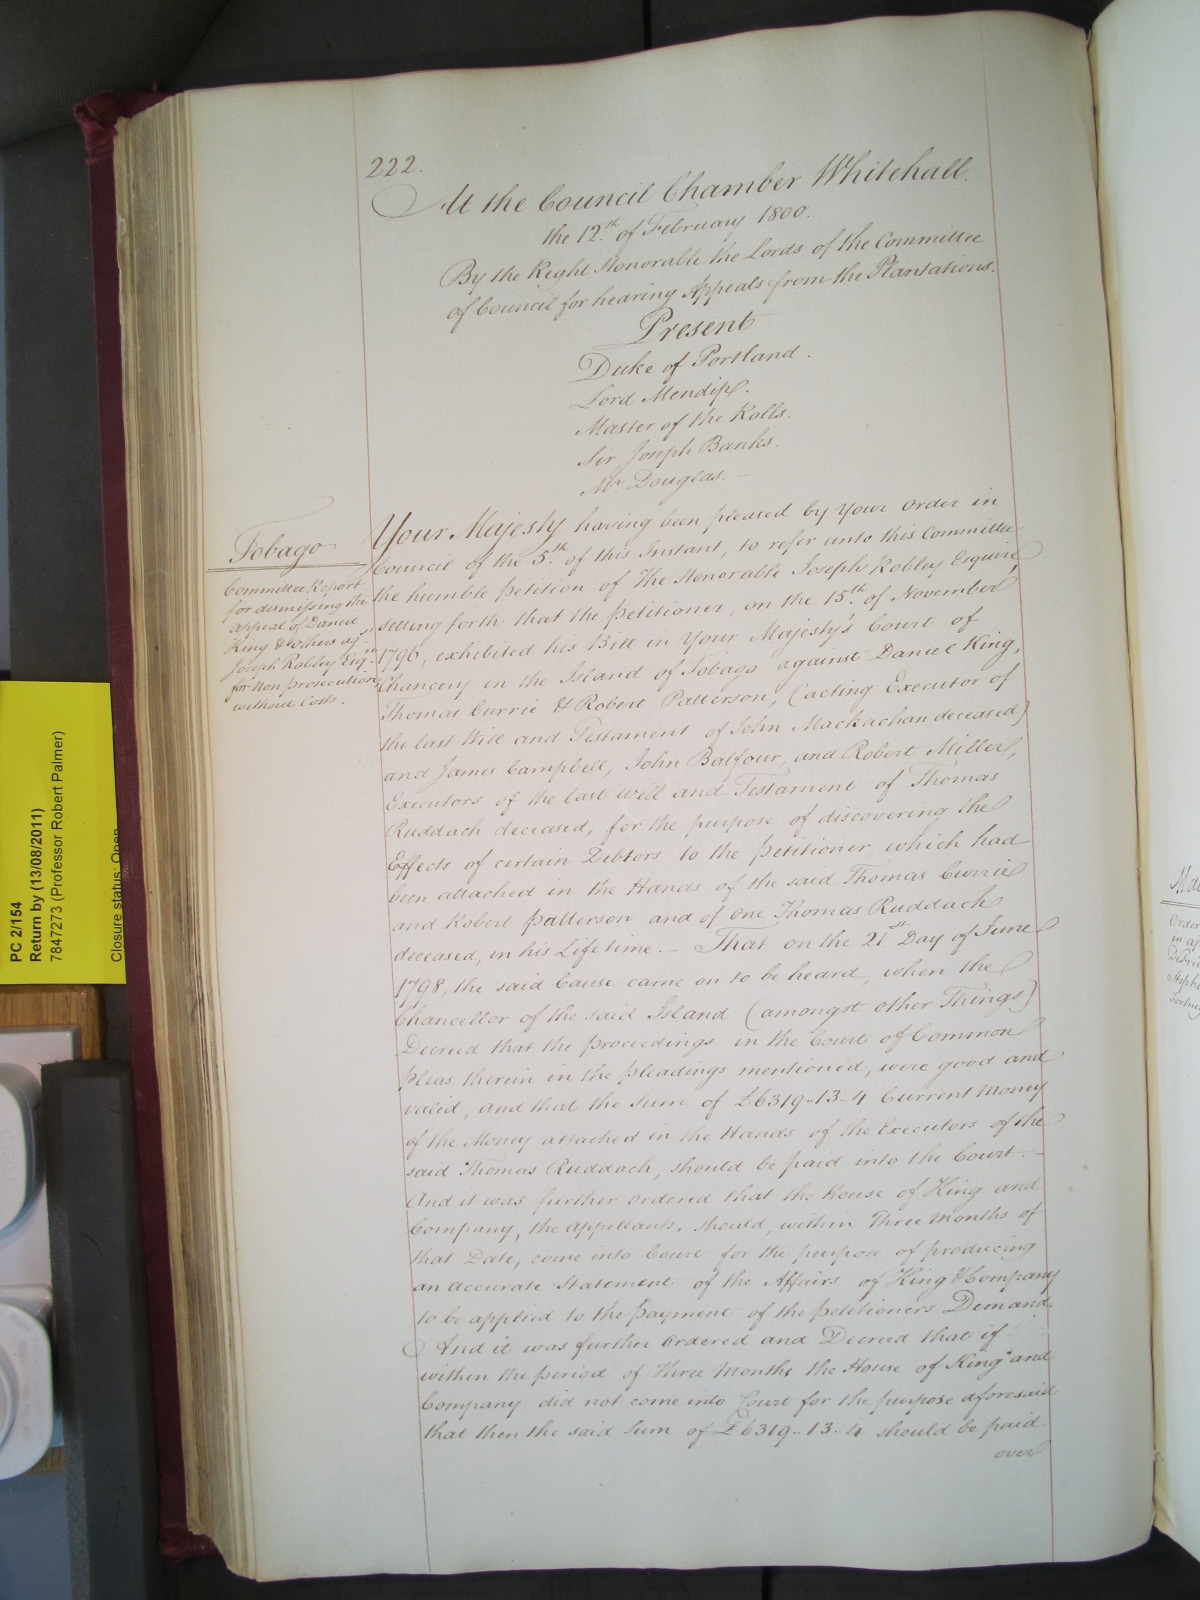 222.
At the Council Chamber Whitehall.
the 12th of February 1800.
By the Right Honorable the Lords of the Committee
of Council for hearing Appeals from the Plantations.
Present
Duke of Portland.
Lord Mendip.
Master of the Rolls.
Sir Joseph Banks.
Mr. Douglas. —
Tobago
Committee Report
for dismissing the
appeal of Daniel
King & others agst
Joseph Robley Esqre
for Non prosecution
without Costs.
Your Majesty having been pleased by Your Order in
Council of the 5th of this Instant, to refer unto this Committee
the humble Petition of The Honorable Joseph Robley Esquire,
setting forth that the Petitioner, on the 15th of November
1796, exhibited his Bill in Your Majesty's Court of
Chancery in the Island of Tobago against Daniel King,
Thomas Currie & Robert Patterson, (acting Executor of
the last Will and Testament of John Mackachan deceased)
and James Campbell, John Balfour, and Robert Miller,
Executors of the last Will and Testament of Thomas
Ruddach deceased, for the purpose of discovering the
Effects of certain Debtors to the Petitioner, which had
been attached in the Hands of the said Thomas Currie
and Robert Patterson and of one Thomas Ruddach
deceased, in his Life time. — That on the 21st Day of June
1798, the said Cause came on to be heard, when the
Chancellor of the said Island (amongst other Things)
Decreed that the proceedings in the Court of Common
Pleas therein in the pleadings mentioned, were good and
valid, and that the Sum of £6319..13..4 Current Money
of the Money attached in the Hands of the Executors of the
said Thomas Ruddach, should be paid into the Court. —
And it was further Ordered that the House of King and
Company, the Appellants, should, within Three Months of
that Date, come into Court for the purpose of producing
an accurate Statement of the Affairs of King & Company
to be applied to the Payment of the Petitioners Demand.
And it was further Ordered and Decreed that if
within the period of three Months the House of King and
Company did not come into Court for the purpose aforesaid
that then the said Sum of £6319..13..4 should be paid
over
PC 2/154
Return by (13/08/2011)
7847273 (Professor Robert Palmer)
Closure status: Open